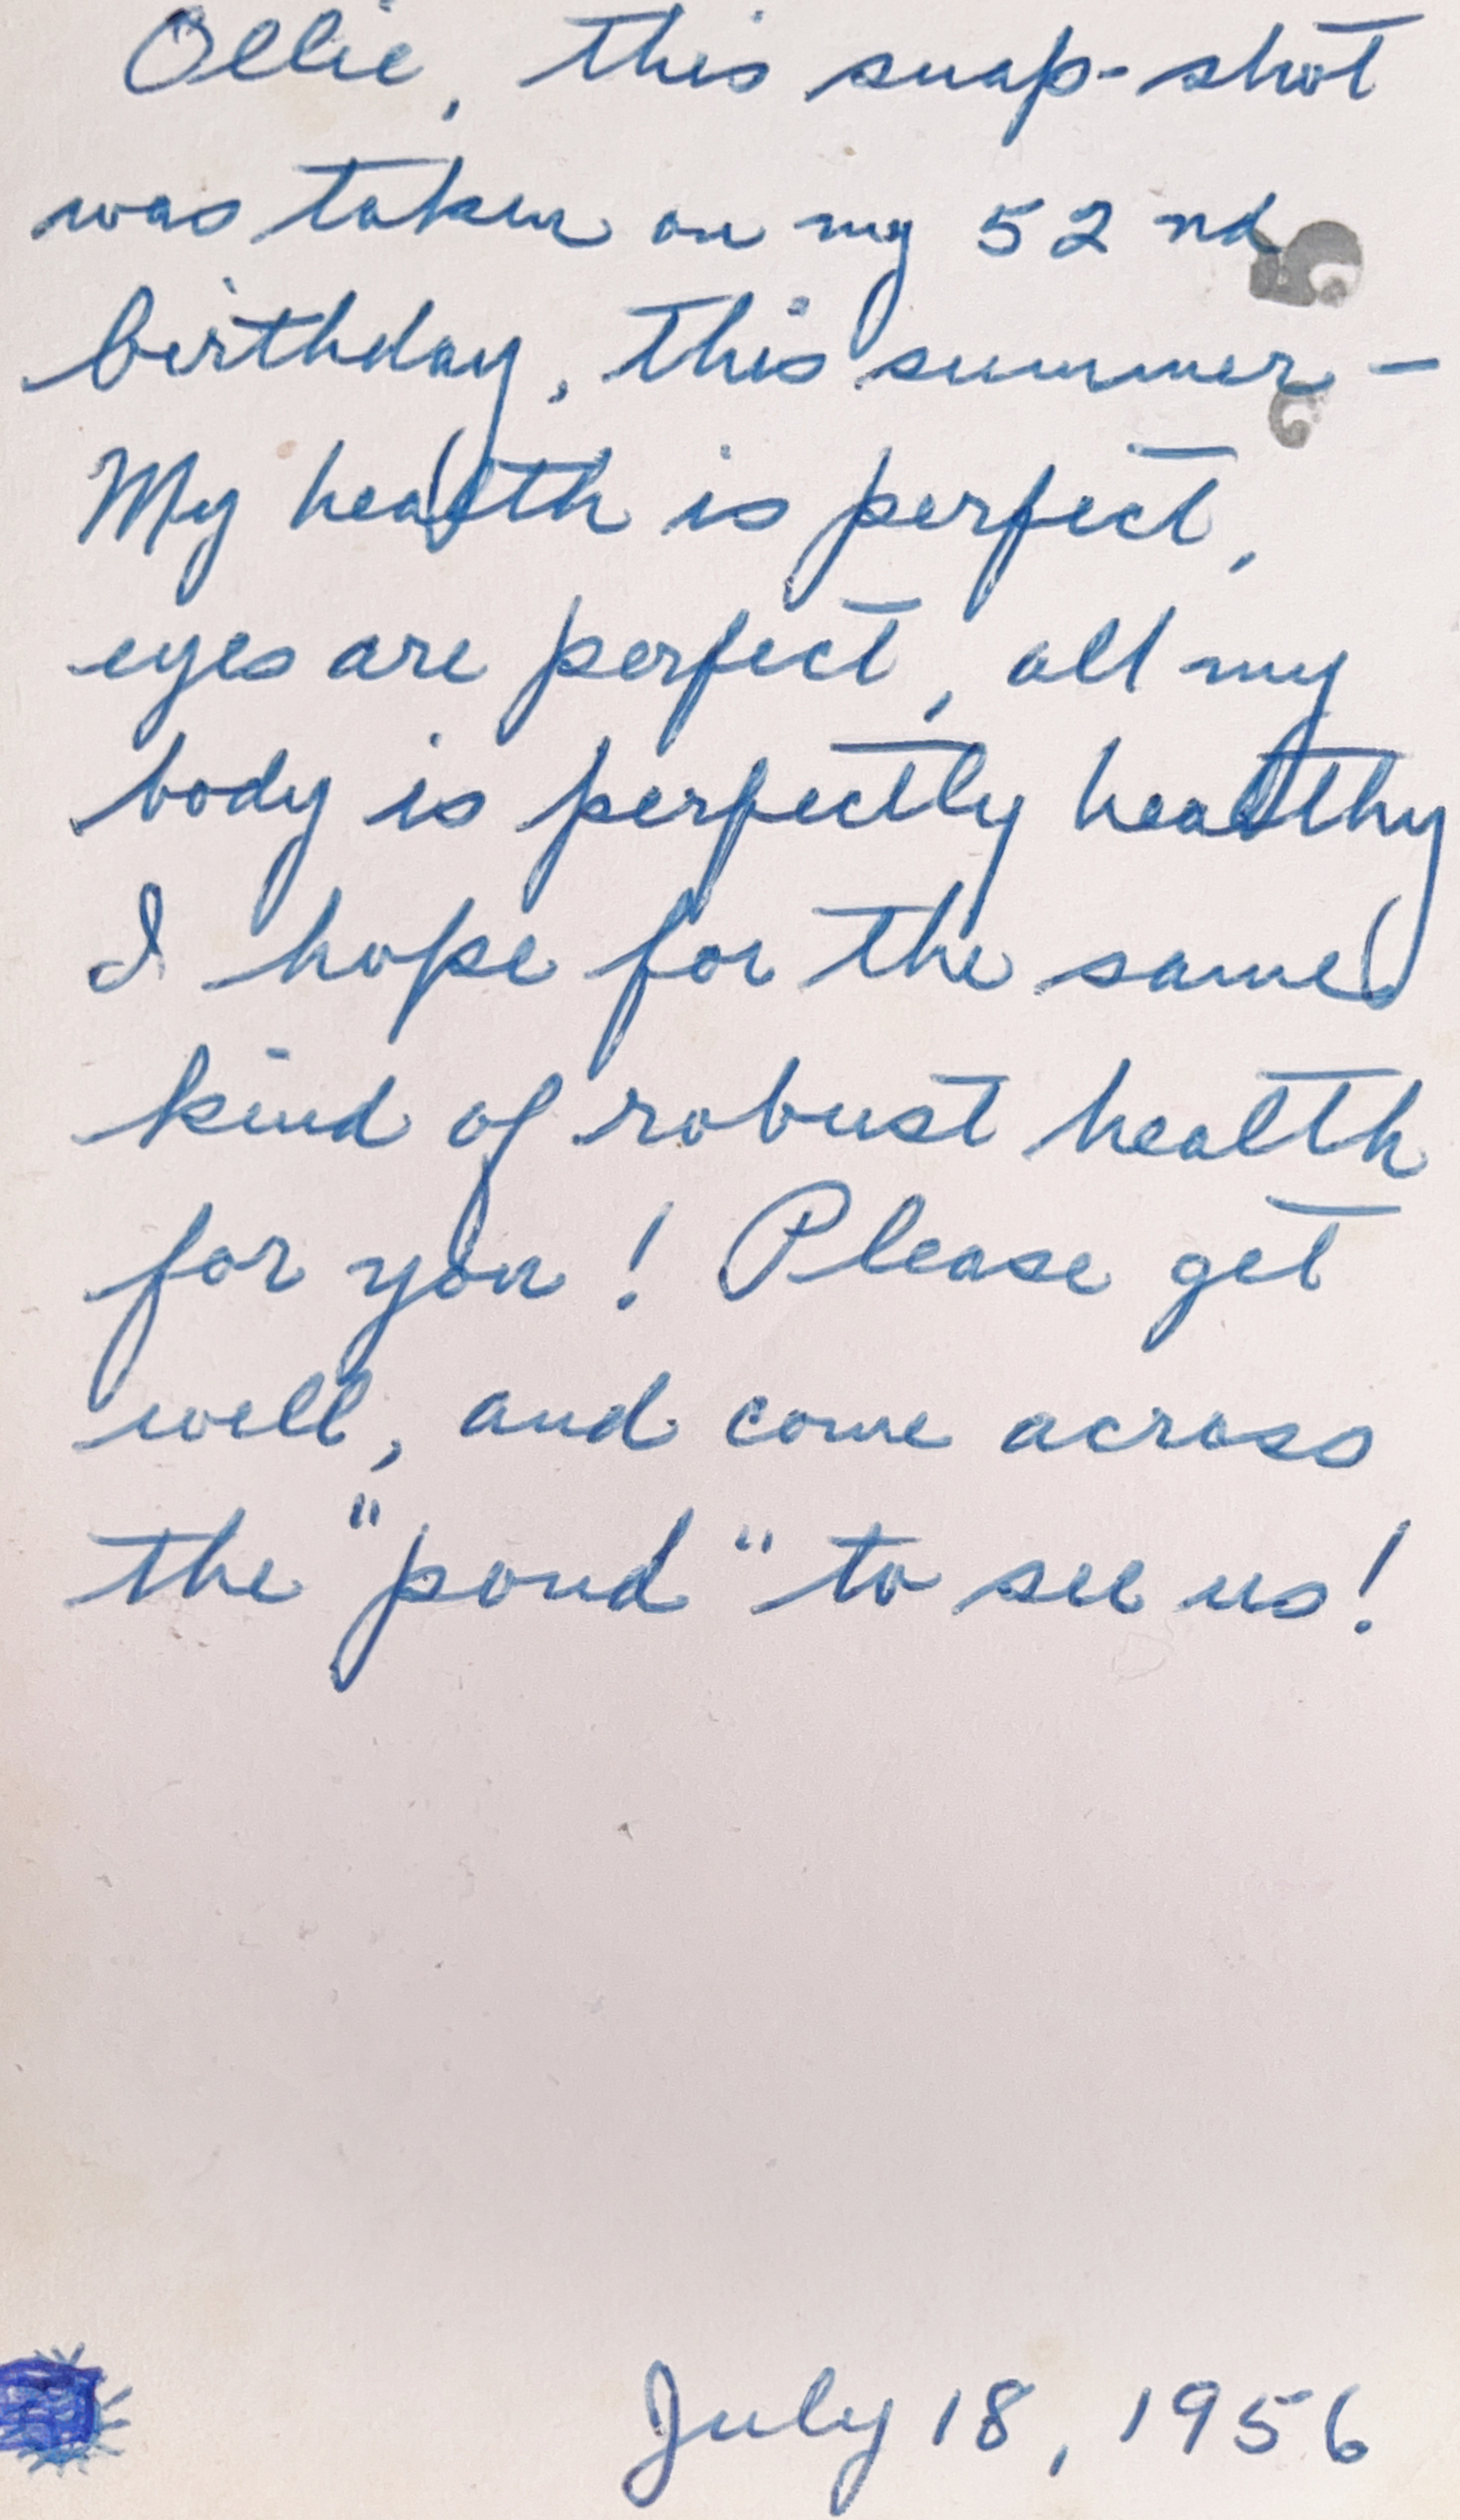 Ollie, this snap-shot
was taken on my 52nd
birthday, this summer –
My health is perfect,
eyes are perfect, all my
body is perfectly healthy
I hope for the same
kind of robust health
for you! Please get
well, and come across
the "pond" to see us!
July 18, 1956